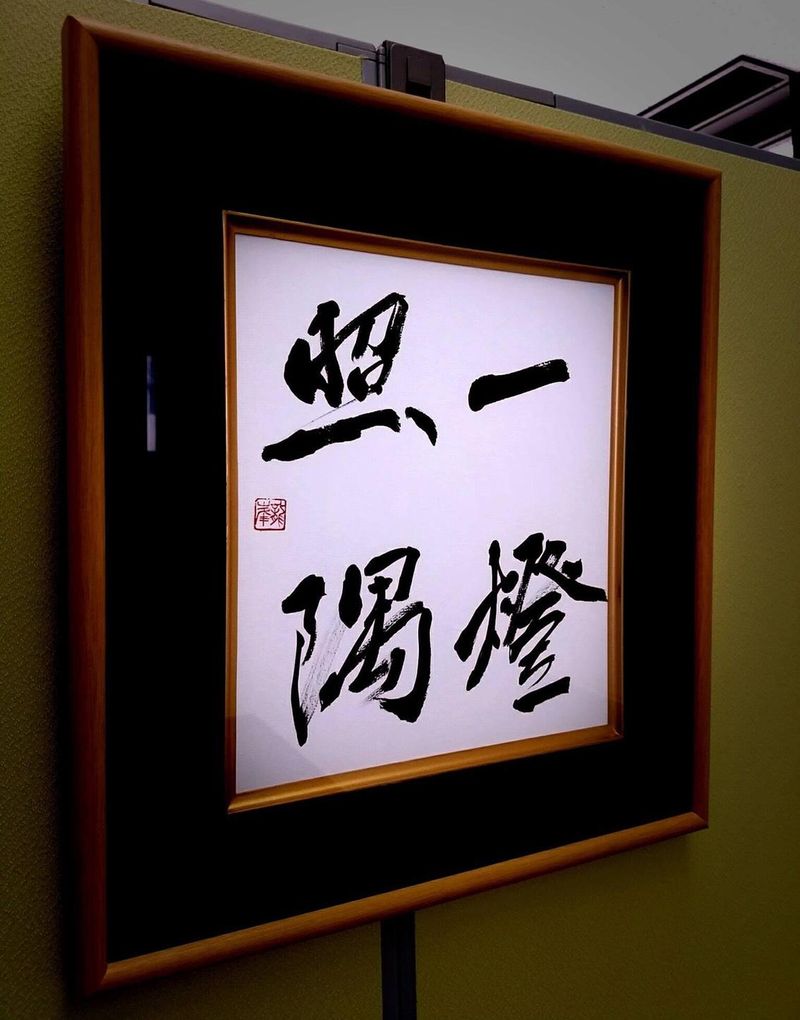 一燈
照隅